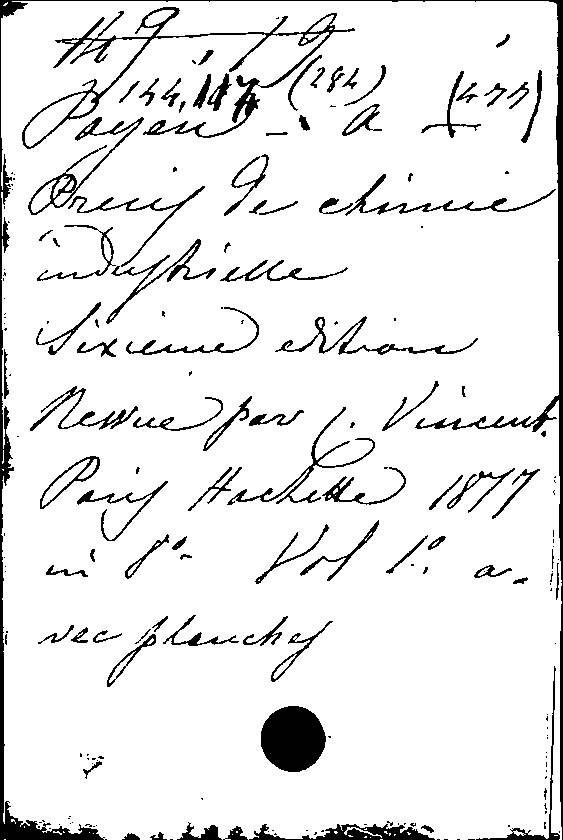 (284) (477)
Payen - A
Precis de chimie
industrielle
Sixieme edition
Revue par C. Vincent.
Paris Hachette 1877
in 8º- Vol 1º. a-
vec planches